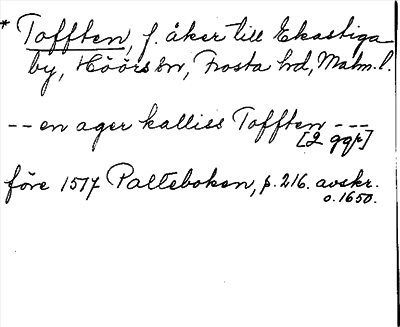 * Tofften, f. åker till Ekastiga
by, Höörs sn, Frosta hd, Malm. l.
-- en ager kalliss Tofften ---
[2 ggr]
före 1517 Palteboken, p. 216. avskr.
o. 1650.